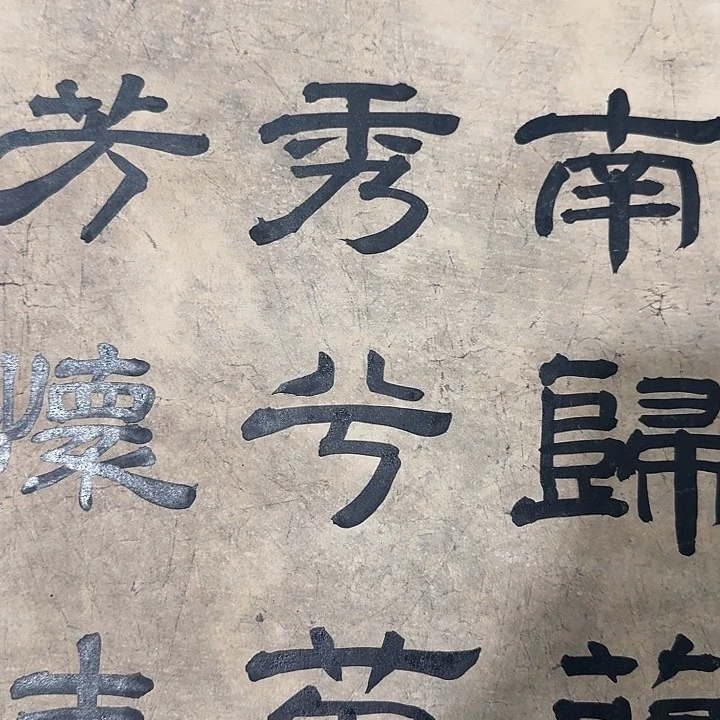 南歸
秀兮
芳懷